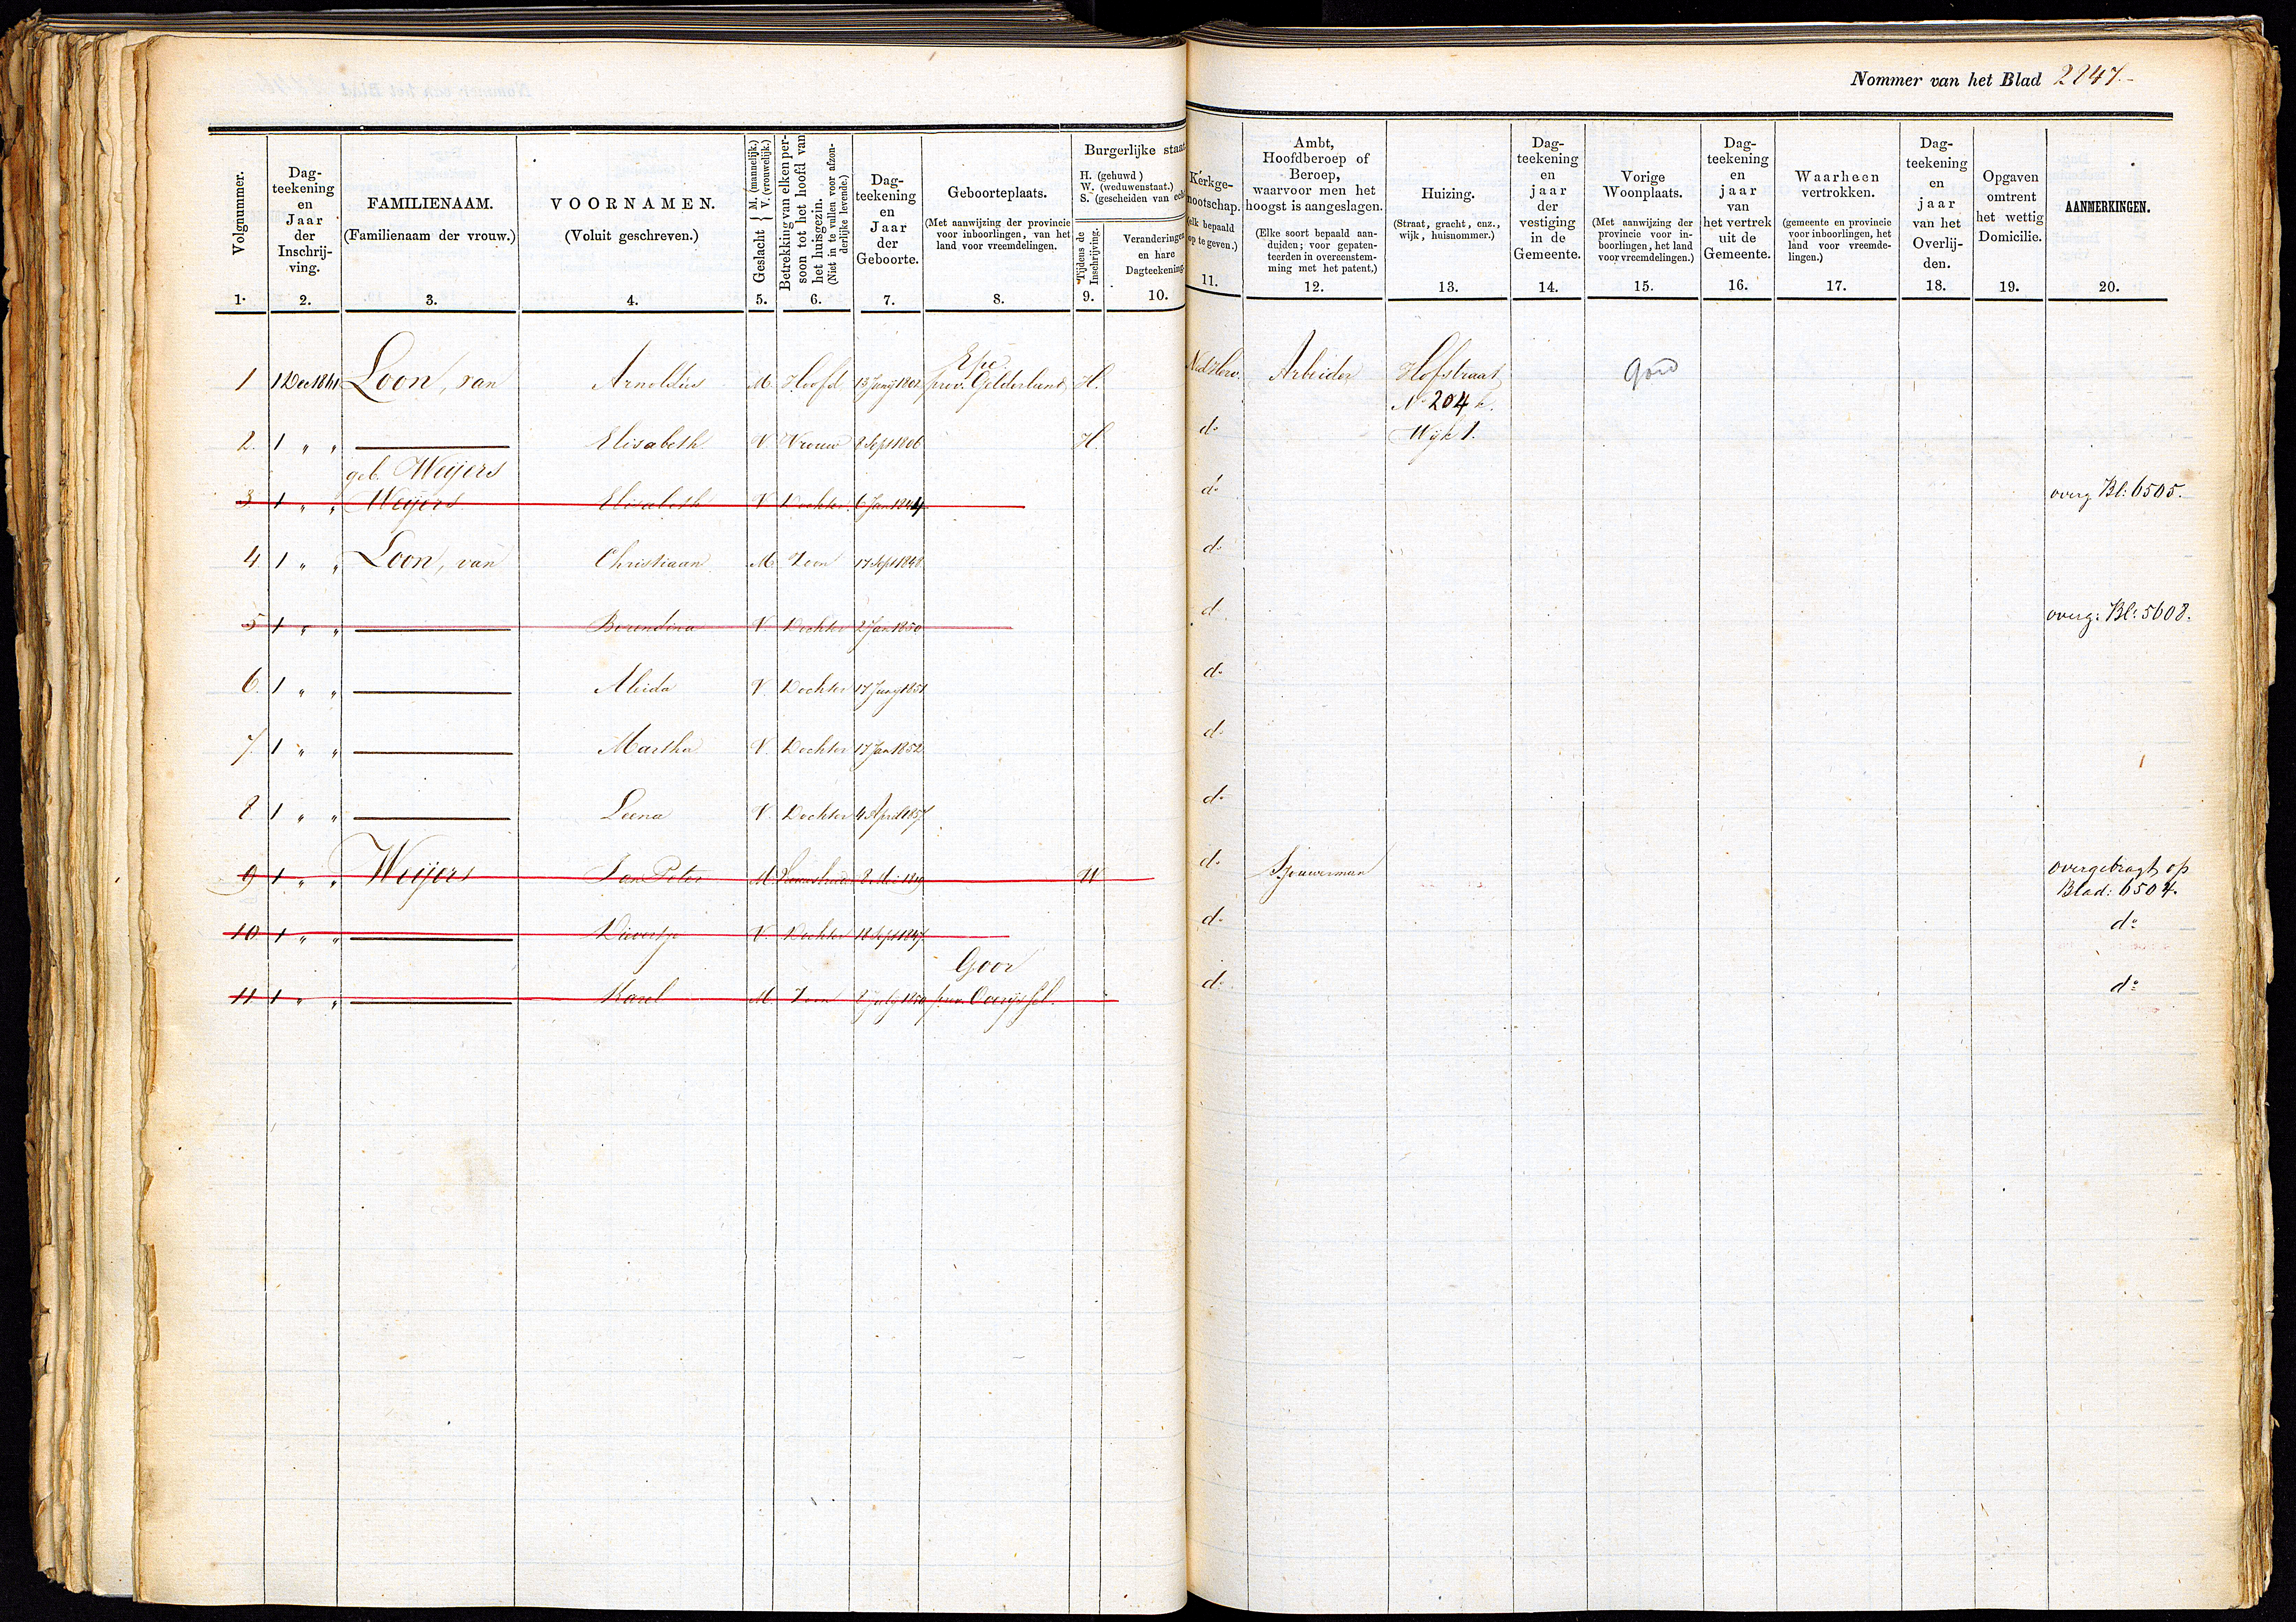 Nommer van het Blad 2247.-
Volgnummer.
1.
Dag-
teekening
en
Jaar
der
Inschrij-
ving.
2.
FAMILIENAAM.
(Familienaam der vrouw.)
3.
VOORNAMEN.
(Voluit geschreven.)
4.
Geslacht { M. (mannelijk.) V. (vrouwelijk.)
5.
Betrekking van elken per-
soon tot het hoofd van
het huisgezin.
(Niet in te vullen voor afzon-
derlijke levende.)
6.
Dag-
teekening
en
Jaar
der
Geboorte.
7.
Geboorteplaats.
(Met aanwijzing der provincie
voor inboorlingen, van het
land voor vreemdelingen.
8.
Burgerlijke staat
H. (gehuwd)
W. (weduwenstaat.)
S. (gescheiden van ech
Tijdens de
Inschrijving.
9.
Veranderingen
en hare
Dagteekening.
10.
Kerkge-
nootschap.
(elk bepaald
op te geven.)
11.
Ambt,
Hoofdberoep of
Beroep,
waarvoor men het
hoogst is aangeslagen.
(Elke soort bepaald aan-
duiden; voor gepaten-
teerden in overeenstem-
ming met het patent.)
12.
Huizing.
(Straat, gracht, enz.,
wijk, huisnommer.)
13.
Dag-
teekening
en
jaar
der
vestiging
in de
Gemeente.
14.
Vorige
Woonplaats.
(Met aanwijzing der
provincie voor in-
boorlingen, het land
voor vreemdelingen.)
15.
Dag-
teekening
en
jaar
van
het vertrek
uit de
Gemeente.
16.
Waarheen
vertrokken.
(gemeente en provincie
voor inboorlingen, het
land voor vreemde-
lingen.)
17.
Dag-
teekening
en
jaar
van het
Overlij-
den.
18.
Opgaven
omtrent
het wettig
Domicilie.
19.
AANMERKINGEN.
20.
1 1 Dec 1861 Loon, van Arnoldus M. Hoofd 13 Junij 1802 Epe prov. Gelderland H. Ned Herv. Arbeider Hofstraat
No 204
2. 1 " " Elisabeth V. Vrouw 8 Sept 1806 H. do Wijk 1.
geb. Weijers
3 1 " " Weijers Elisabeth V. Dochter 6 Jan 1844 do overg Bl: 6505.
4 1 " " Loon, van Christiaan M. Zoon 17 Sept 1848 do
5 1 " " Berendina V. Dochter 2 Jan 1850 d overg: Bl: 5608.
6. 1 " " Aleida V. Dochter 17 Junij 1851 do
7. 1 " " Martha V. Dochter 17 Jan 1852 do
8. 1 " " Leena V. Dochter 4 April 1857 do
9 1 " " Weijers Jan Peter M. 8 Mei 1819 W do Sjouwerman overgebragt op
Blad: 6504.
10 1 " " V. Dochter 18 Sept 1847 do do
11 1 " " Karel M. Zoon 2 July 1850 Goor prov. Overijssel. do do